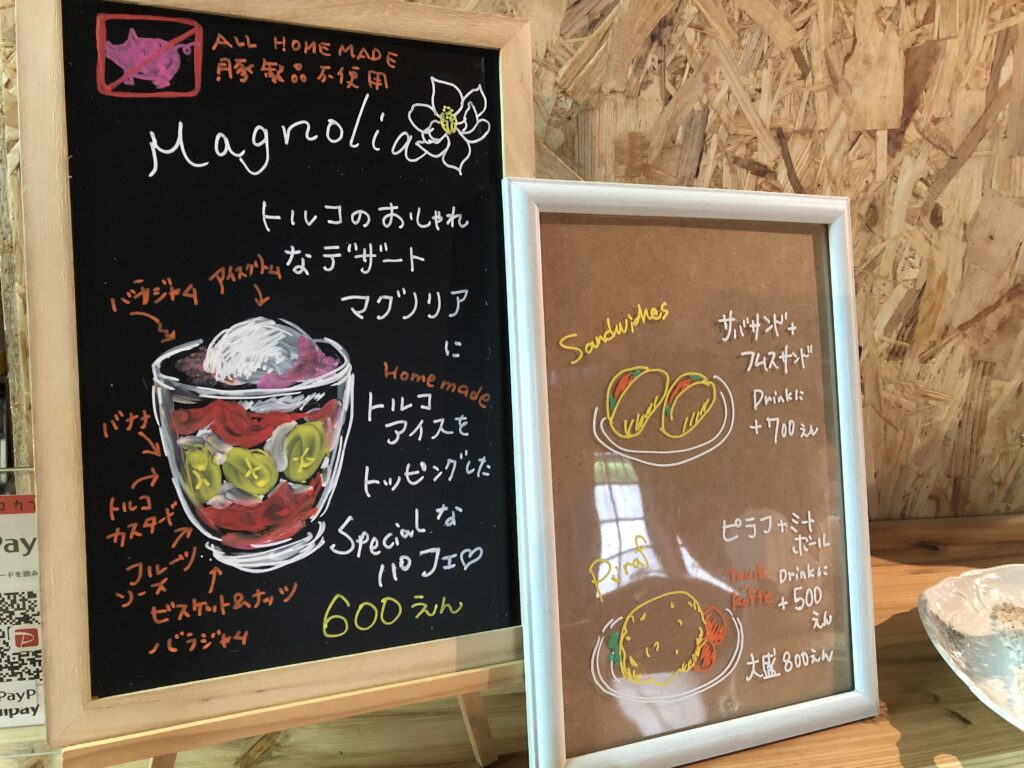 ALL HOMEMADE
豚製品不使用
Magnolia
トルコのおしゃれ
なデザート
マグノリア
に
Homemade
トルコ
アイスを
トッピングした
Specialな
パフェ♡
600えん
バラジャム
アイスクリーム
バナナ
トルコ
カスタード
フルーツ
ソース
ビスケット&ナッツ
バラジャム
Sandwiches
サバサンド+
フムスサンド
Drinkに
+700えん
Pilaf
ピラフ+ミート
ボール
Drinkに
+500
えん
大盛800えん
Pay
ードを読み
PayP
lipay